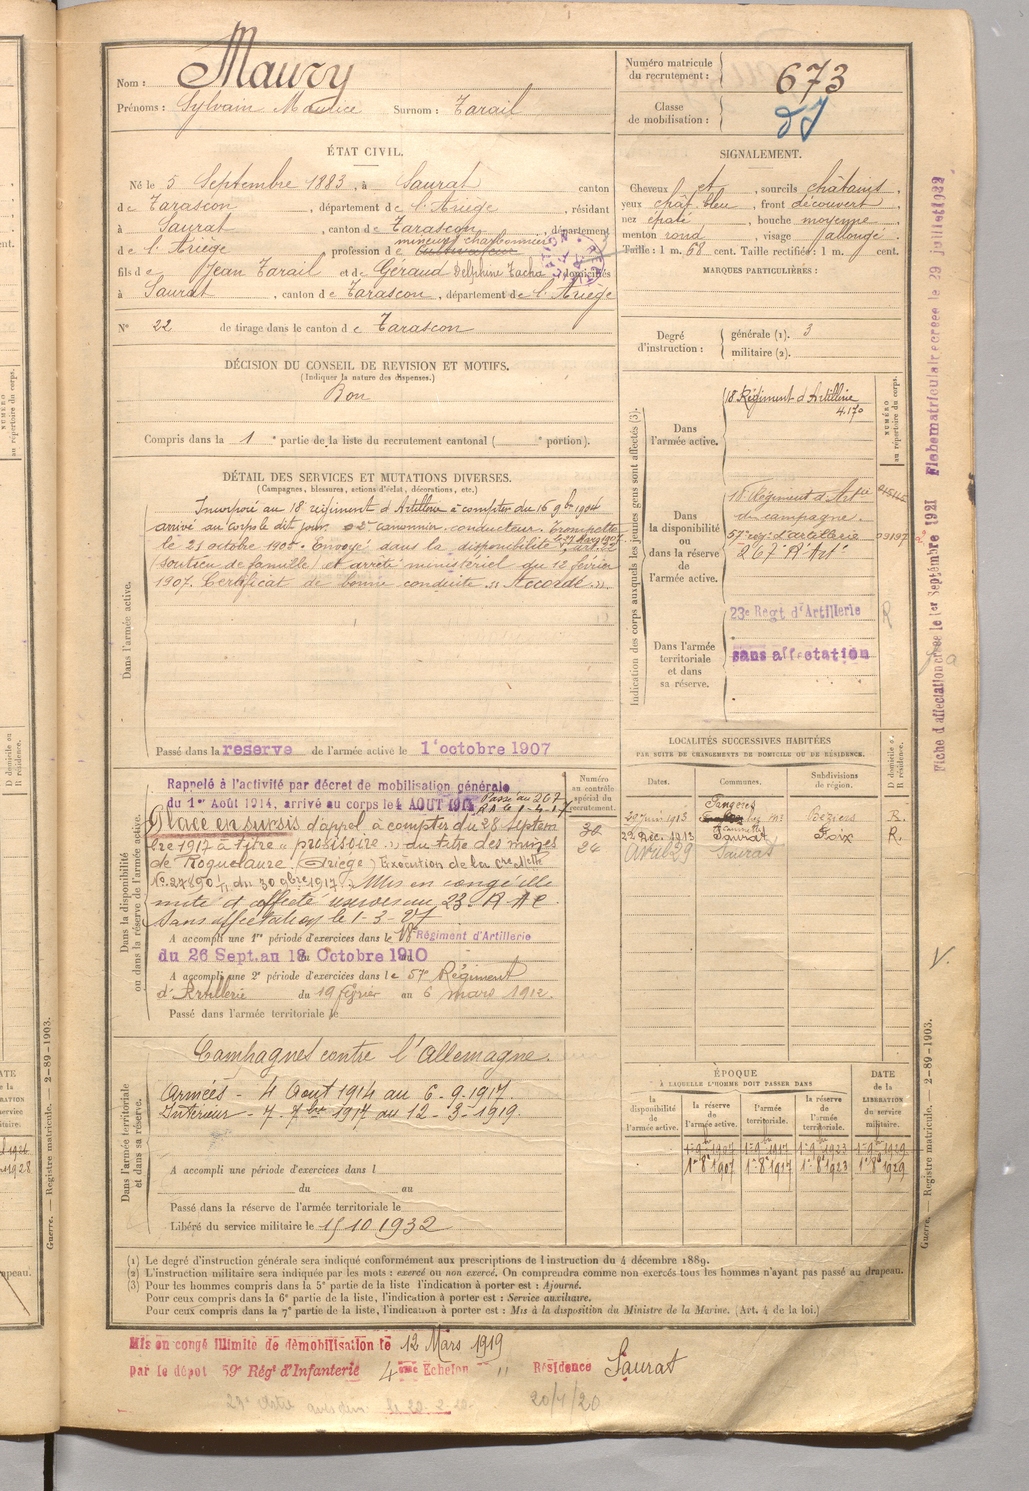 Nom : Maury
Prénoms : Sylvain Maurice Surnom : Tarail
Numéro matricule du recrutement : 673
Classe de mobilisation :
ÉTAT CIVIL.
Né le 5 Septembre 1883, à Saurat canton
de Tarascon, département de l'Ariège, résidant
à Saurat, canton de Tarascon, département
de l'Ariège, profession de mineur charbonnier
fils de Jean Tarail et de Géraud Delphine Zacha domiciliés
à Saurat, canton de Tarascon, département de l'Ariège
N° 22 de tirage dans le canton de Tarascon
SIGNALEMENT.
Cheveux et, sourcils châtains,
yeux chat. bleu, front découvert,
nez épaté, bouche moyenne,
menton rond, visage allongé.
Taille : 1 m. 68 cent. Taille rectifiée : 1 m. cent.
MARQUES PARTICULIÈRES :
Degré d'instruction : générale (1). 3
militaire (2).
DÉCISION DU CONSEIL DE REVISION ET MOTIFS.
(Indiquer la nature des dispenses.)
Bon
Compris dans la 1e partie de la liste du recrutement cantonal ( e portion).
DÉTAIL DES SERVICES ET MUTATIONS DIVERSES.
(Campagnes, blessures, actions d'éclat, décorations, etc.)
Dans l'armée active.
Incorporé au 18e régiment d'Artillerie à compter du 16 9bre 1904
arrivé au corps le dit jour, 2e canonnier conducteur. Trompette
le 21 octobre 1905. Envoyé dans la disponibilité
(soutien de famille) et arrêté ministériel du 12 février
1907. Certificat de bonne conduite « Accordé ».
Passé dans la reserve de l'armée active le 1er octobre 1907
Indication des corps auxquels les jeunes gens sont affectés (3).
NUMÉRO au répertoire du corps.
Dans l'armée active.
18 Régiment d'Artillerie
4.170
Dans la disponibilité ou dans la réserve de l'armée active.
18 Régiment d'Artie
de campagne.
57e rég. d'artillerie
267 R. Art.
Dans l'armée territoriale et dans sa réserve.
23e Regt d'Artillerie R
sans affectation
LOCALITÉS SUCCESSIVES HABITÉES
PAR SUITE DE CHANGEMENTS DE DOMICILE OU DE RÉSIDENCE.
Dates. Communes. Subdivisions de région. D domicile ou R résidence.
1913 Béziers R.
22 Déc. 1913 Saurat Foix R.
Avril 29 Saurat
Dans la disponibilité ou dans la réserve de l'armée active.
Numéro au contrôle spécial du recrutement.
Rappelé à l'activité par décret de mobilisation générale
du 1er Août 1914, arrivé au corps le 4 AOUT 1914 Passé au 267
R.A. le 1-4-17
Placé en sursis d'appel à compter du 28 Septem
bre 1917 à titre « provisoire » du titre des mines
de Roquelaure (Ariège) Exécution de la
du 30 9bre 1917. Mis en congé illi
mité d
Sans affectation le 1-3-27
A accompli une 1re période d'exercices dans le 18e Régiment d'Artillerie
du 26 Sept. au 18 Octobre 1910
A accompli une 2e période d'exercices dans le 57e Régiment
d'Artillerie du 19 février au 6 mars 1912.
Passé dans l'armée territoriale le
Dans l'armée territoriale et dans sa réserve.
Campagnes contre l'Allemagne.
Armées - 4 Août 1914 au 6-9-1917.
Intérieur - 7. 7bre 1917 au 12-3-1919.
A accompli une période d'exercices dans l
du au
Passé dans la réserve de l'armée territoriale le
Libéré du service militaire le 15 10 1932
ÉPOQUE
À LAQUELLE L'HOMME DOIT PASSER DANS
DATE de la LIBÉRATION du service militaire.
la disponibilité de l'armée active. la réserve de l'armée active. l'armée territoriale. la réserve de l'armée territoriale.
1er 8e 1907 1er 8e 1917 1er 8e 1923 1er 8e 1929
(1) Le degré d'instruction générale sera indiqué conformément aux prescriptions de l'instruction du 4 décembre 1889.
(2) L'instruction militaire sera indiquée par les mots : exercé ou non exercé. On comprendra comme non exercés tous les hommes n'ayant pas passé au drapeau.
(3) Pour les hommes compris dans la 5e partie de la liste l'indication à porter est : Ajourné.
Pour ceux compris dans la 6e partie de la liste, l'indication à porter est : Service auxiliaire.
Pour ceux compris dans la 7e partie de la liste, l'indication à porter est : Mis à la disposition du Ministre de la Marine. (Art. 4 de la loi.)
Mis en congé illimité de démobilisation le 12 Mars 1919
par le dépôt 59e Régt d'Infanterie 4ème Echelon Résidence Saurat
20/4/20
Fiche d'affectation créée le 1er Septembre 1921
Fiche matriculaire créée le 29 juillet 1932
Guerre. — Registre matricule. — 2-89-1903.